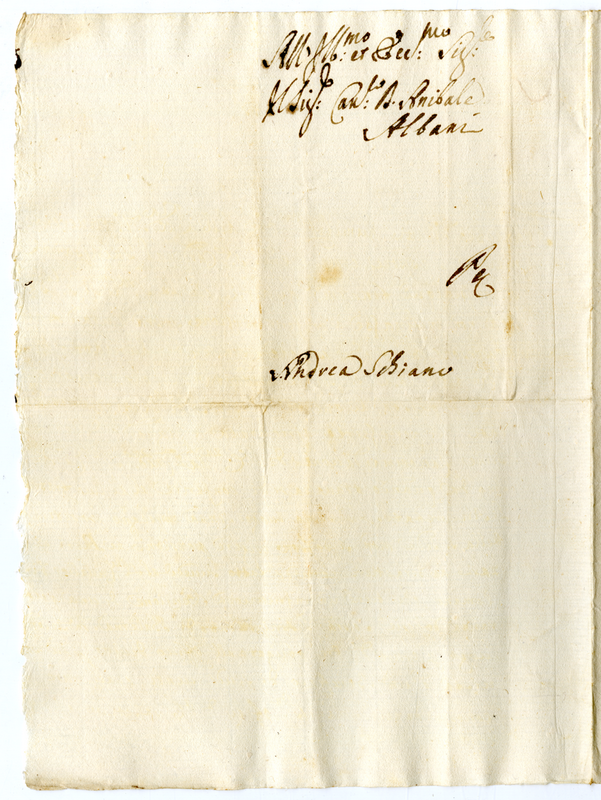 All' Ill:mo et Ecc:mo Sig:re
Il Sig:re Car:le D. Anibale
Albani
Per
Andrea Schiano